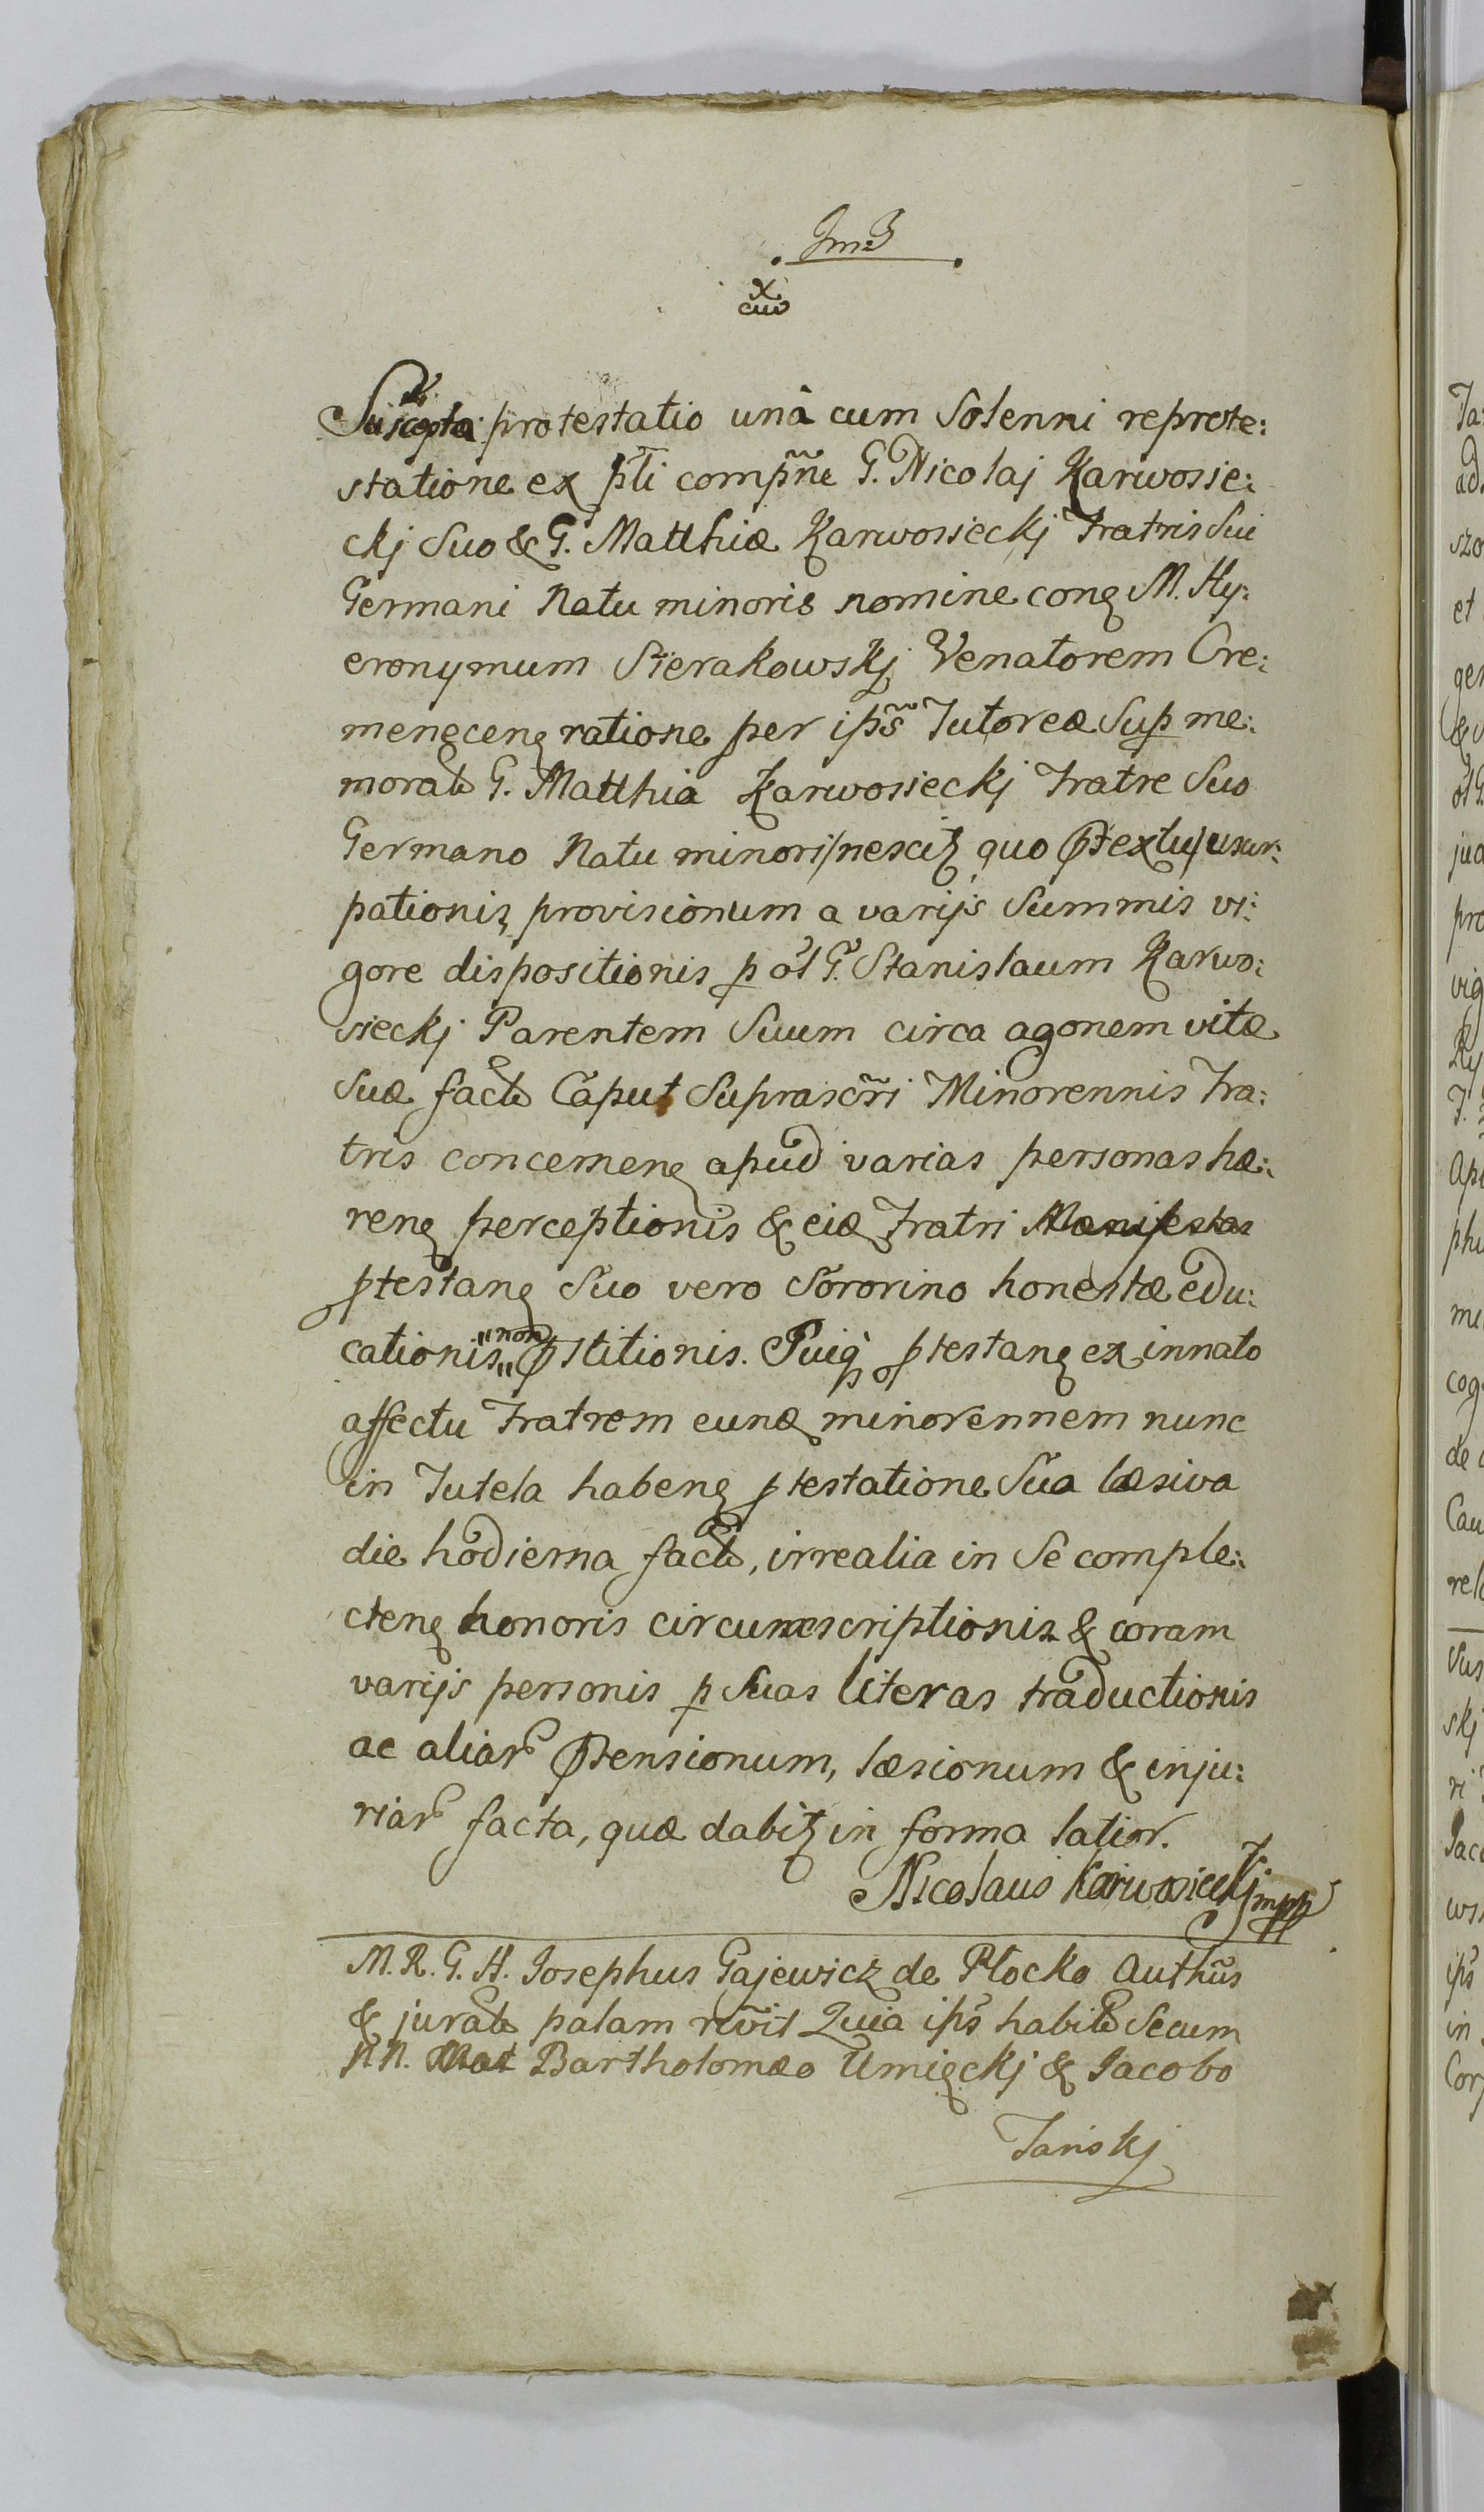 Suscepta protestatio unà cum Solenni reprote:
statione ex pti compñe G. Nicolaj Karwosie:
ckj Suo & G. Matthiæ Karwosieckj Fratris Sui
Germani Natu minoris nomine conę M. Hy:
eronymum Sierakowskj Venatorem Cre:
menęcenę ratione per ips Tutoreæ Sup me:
morate G. Matthia Karwosieckj Fratre Suo
Germano Natu minori/nescitz quo ptextu/usur:
pationis, provisionum a varijs Summis vi:
gore dispositionis p ol G. Stanislaum Karwo:
sieckj Parentem Suum circa agonem vitæ
Suæ facte Caput Suprascri Minorennis Fra:
tris concernenę apud varias personas hæ:
renę perceptionis & eiæ Fratri
ptestanę Suo vero Sororino honestæ edu:
cationis "non" pstitionis. Puiq ptestanę ex innato
affectu Fratrem eunæ minorennem nunc
in Tutela habenę ptestatione Sua læsiva
die hodierna facte, irrealia in Se comple:
ctenę honoris circumscriptionis & coram
varijs personis p Suas literas traductionis
ac aliar ptensionum, læsionum & inju:
riar facta, quæ dabitz in forma latior.
Nicolaus Karwosieckj mpp
M. R. G. H. Josephus Gajewicz de Plocko Authus
& jurate palam rvit Quia ips habite Secum
NN. Bartholomæo Umięckj & Jacobo
Janskj